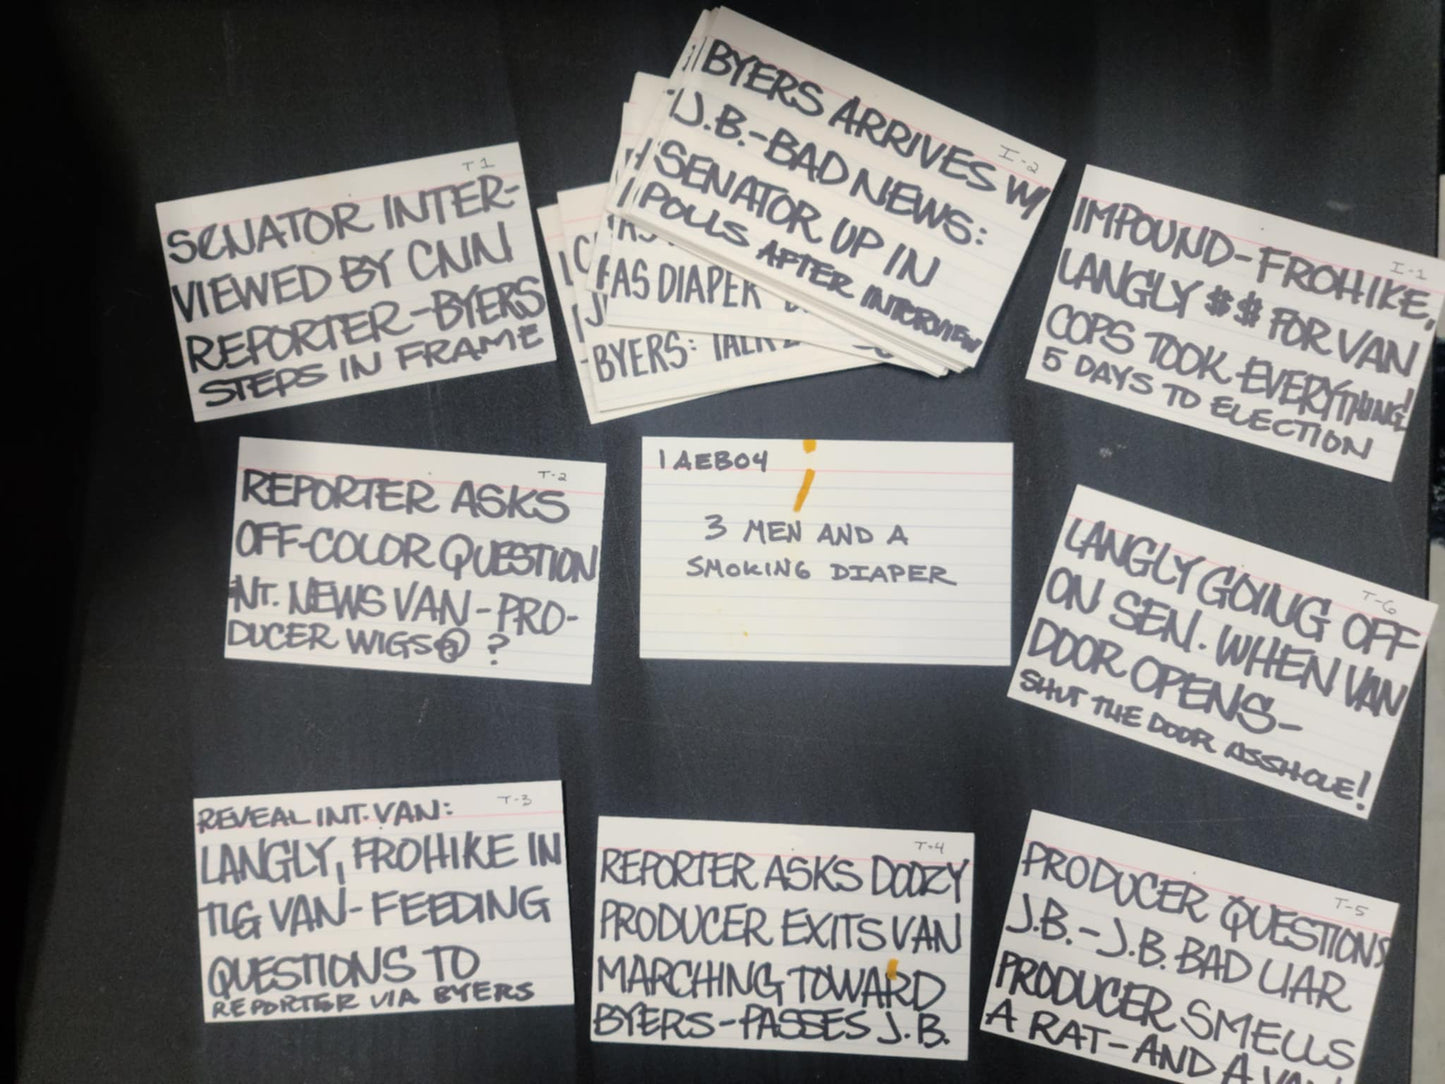 T-1
SENATOR INTER-
VIEWED BY CNN
REPORTER-BYERS
STEPS IN FRAME
T-2
REPORTER ASKS
OFF-COLOR QUESTION
INT. NEWS VAN-PRO-
DUCER WIGS ?
T-3
REVEAL INT. VAN:
LANGLY, FROHIKE IN
TLG VAN-FEEDING
QUESTIONS TO
REPORTER VIA BYERS
T-4
REPORTER ASKS DOOZY
PRODUCER EXITS VAN
MARCHING TOWARD
BYERS-PASSES J.B.
T-5
PRODUCER QUESTIONS
J.B.-J.B. BAD LIAR
PRODUCER SMELLS
A RAT-AND A
T-6
LANGLY GOING OFF
ON SEN. WHEN VAN
DOOR OPENS-
SHUT THE DOOR ASSHOLE!
I-1
IMPOUND-FROHIKE,
LANGLY $$ FOR VAN
COPS TOOK EVERYTHING!
5 DAYS TO ELECTION
I-2
BYERS ARRIVES W/
-J.B.-BAD NEWS:
SENATOR UP IN
POLLS AFTER INTERVIEW
AS DIAPER
BYERS: TALK
1AEB04
3 MEN AND A
SMOKING DIAPER